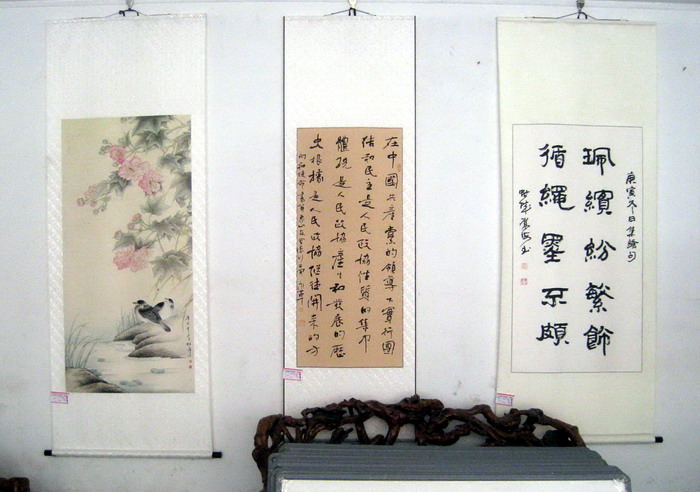 庚寅冬日集騷句
珮繽紛繁飾
循繩墨不頗
在中國共產黨的領導下實行團
結和民主是人民政協性質的集中
體現是人民政協產生和發展的歷
史根據是人民政協繼往開來的方
向和使命